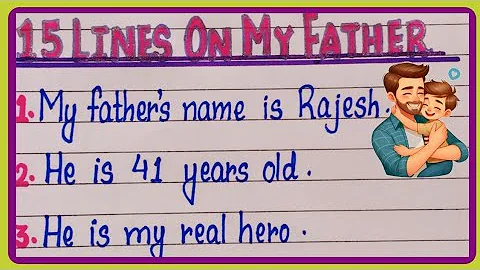 15 LINES ON MY FATHER
1. My father's name is Rajesh.
2. He is 41 years old.
3. He is my real hero.